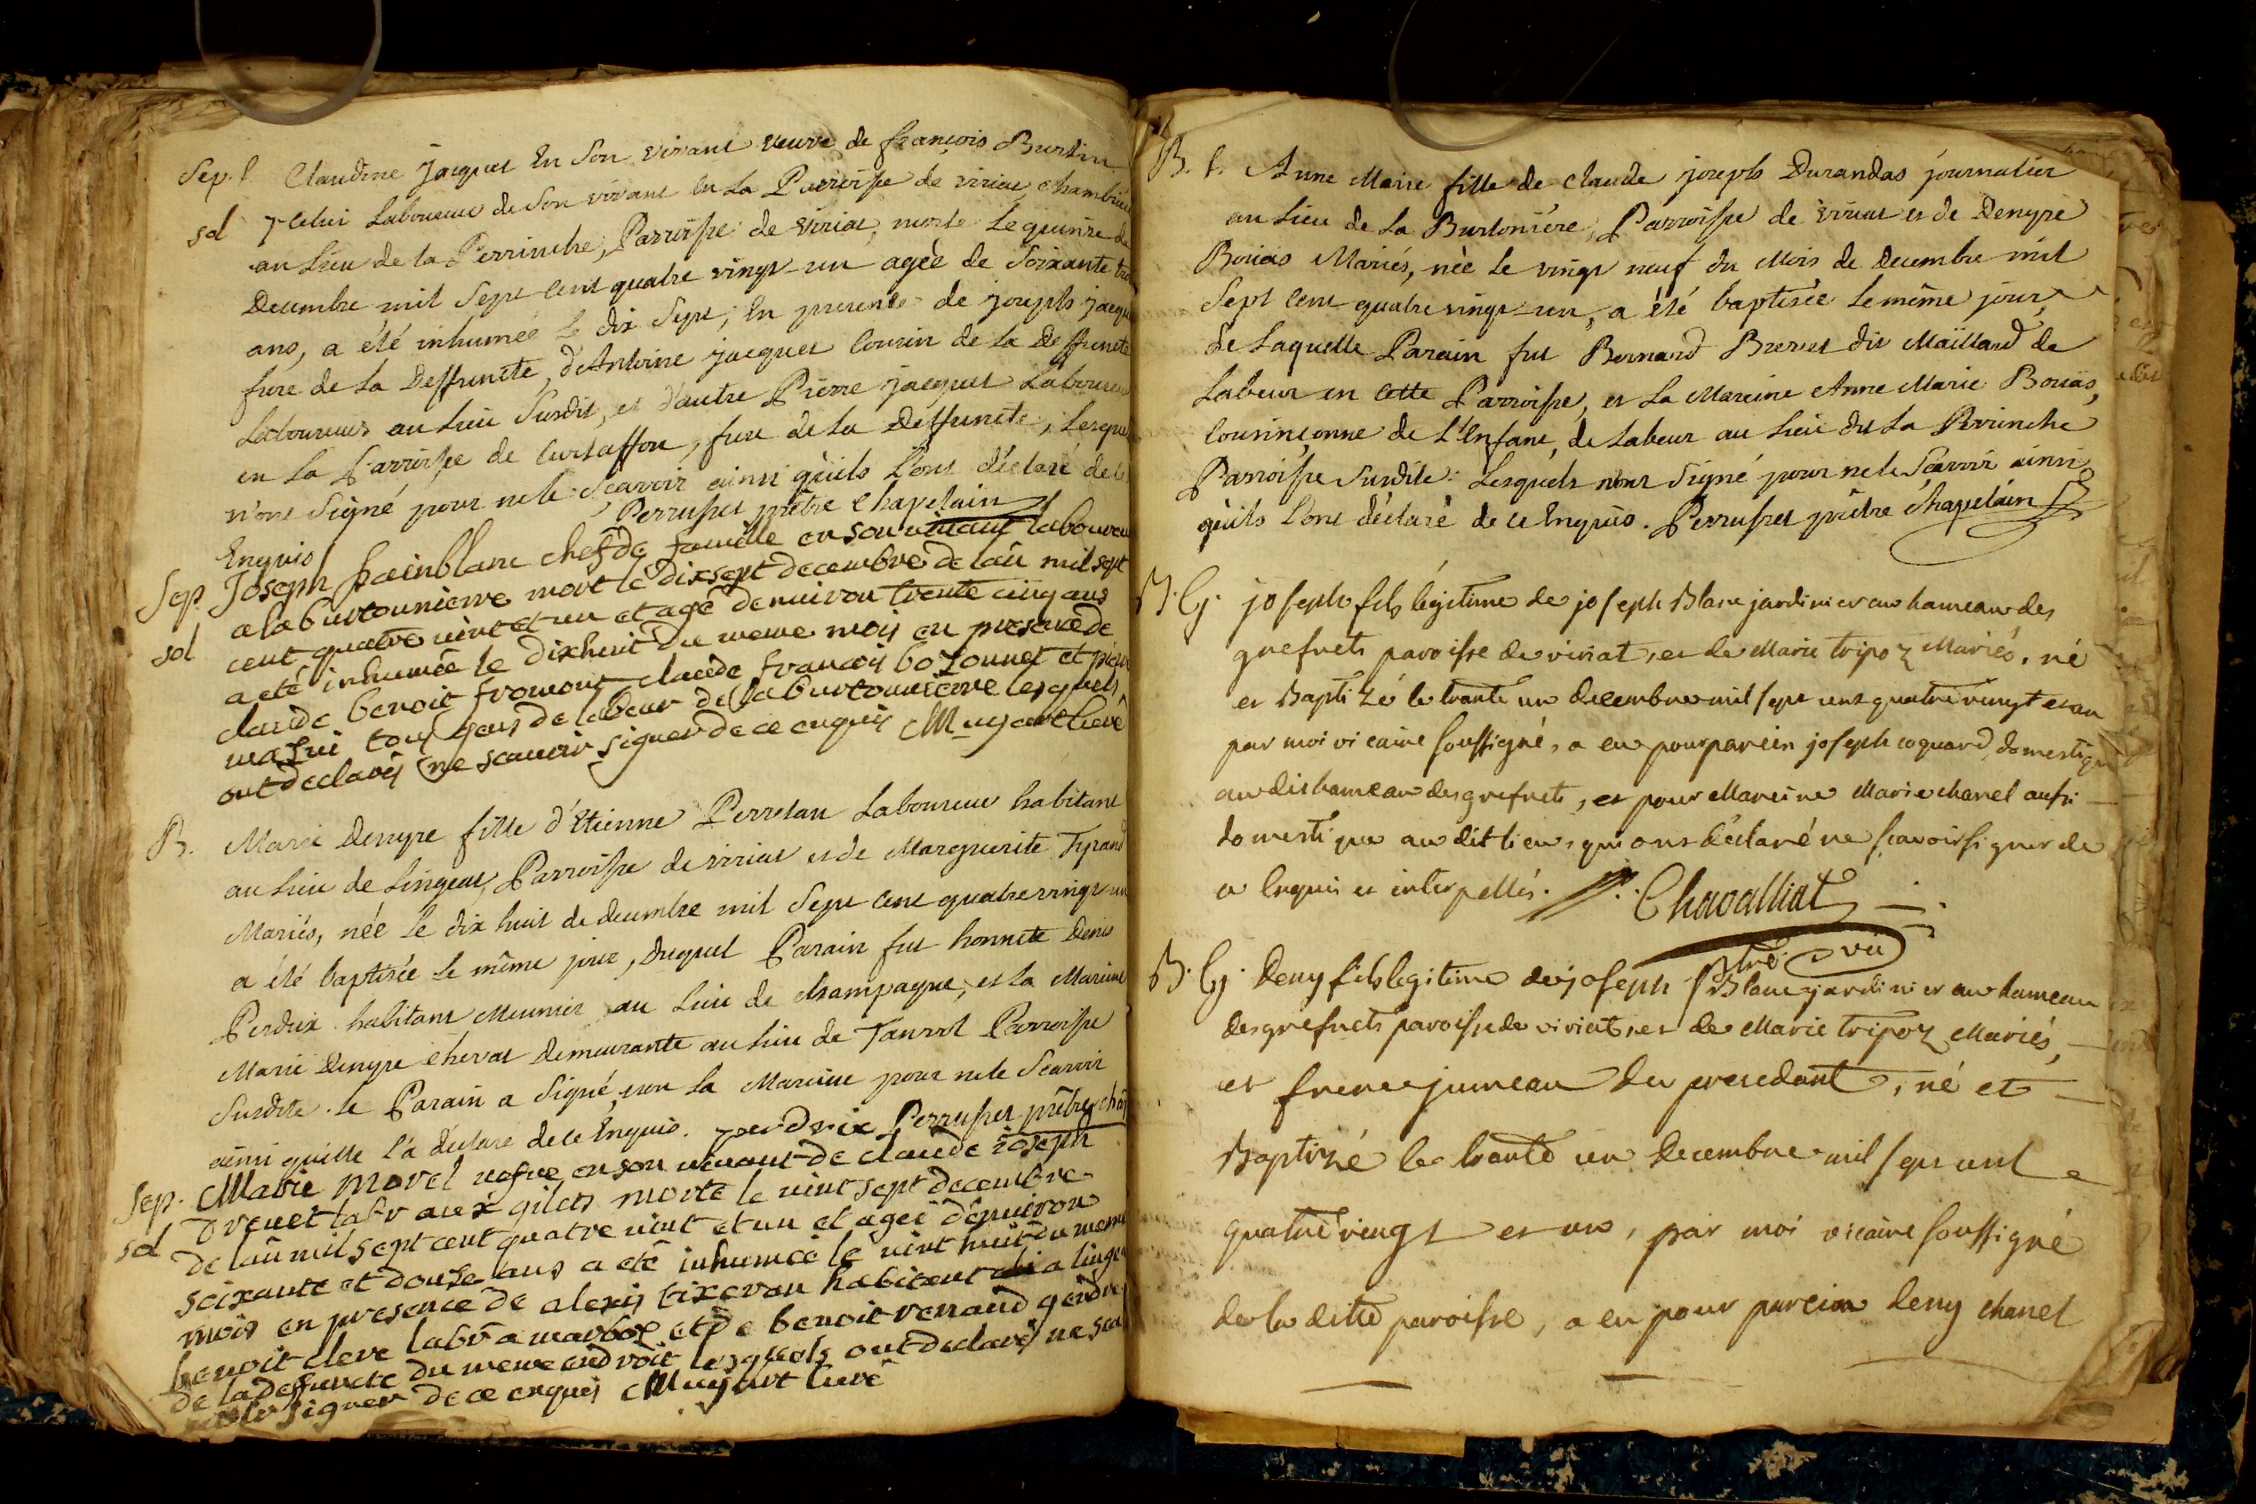 Sep. f. Claudine jacquet En Son vivant veuve de françois Burtin
sol ycelui Laboureur de Son vivant En La Parroisse de viriat, chambriere
au Lieu de la Perrinche, Parroisse de viriat, morte Le quinze de
Decembre mil Sept Cent quatre vingt-un agèè de Soixante trois
ans, a été inhumée le dix Sept, En presence de joseph jacquet
frere de La Deffuncte, d'Antoine jacquet Cousin de La Deffuncte
Laboureurs au Lieu Susdit, et d'autre Pierre jacquet Laboureur
en La Parroisse de Curtaffon, frere de La Deffuncte, Lesquels
n'ont Signé pour ne le Scavoir ainsi qu'ils L'ont déclaré de ce
Enquis Perruset prêtre Chapelain
Sep. Joseph painblanc chef de famille en son vivant laboureur
sol a la burtonnierre mort le dixsept decembre de lan mil sept
cent quatre vint et un et agé denviron trente cinq ans
a eté inhumée le dixhuit du meme mois en presence de
claude benoit fromont claude francois bozonnet et pierre
mazui tous gens de labeur de la burtonnierre lesquels
ont declarés ne scauoir signer de ce enquis Muyart curé
B. Marie Denyse fille d'Etienne Perretan Laboureur habitant
au Lieu de Lingeat, Parroisse de viriat et de Marguerite Tyrand
Mariés, née Le dix huit de decembre mil Sept Cent quatre vingt-un
a été baptisée Le même jour, duquel Parain fut honnete Denis
Perdrix habitant Meunier au Lieu de Champagne, et La Mareine
Marie Denyse Chevat Demeurante au Lieu de Tanvol Parroisse
Susdite. le Parain a Signé, non La Mareine pour ne le Scavoir
ainsi qu'elle l'a déclare de ce Enquis. perdrix Perruset prêtre chap
Sep. Marie Morel vefve en son vivant de claude joseph
sol Drevet labr aux gilets morte le vint sept decembre
de lan mil sept cent quatre vint et un et ageé denviron
soixante et douze ans a eté inhumeé le vint huit du meme
mois en presence de alexis tixeran habitent a lingeat
benoit cleve labr a marboz et de benoit renaud gendre
de la deffuncte du meme endroit lesquels ont declarés ne scau
signer de ce enquis Muyart curé
B. f. Anne Marie fille de Claude joseph Durandas journalier
au Lieu de La Burtoniére, Parroisse de viriat et de Denyse
Boüas Mariés, nèe Le vingt neuf du Mois de Decembre mil
Sept Cent quatre vingt-un, a été baptisée Le même jour,
de Laquelle Parain fut Bernard Brevet dit Maïllard de
Labeur en cette Parroisse, et La Mareine Anne Marie Boüas,
Cousinçonne de L'Enfant, de Labeur au Lieu de La Perrinche
Parroisse Susdite. Lesquels n'ont Signé pour ne le Scavoir ainsi
qu'ils L'ont déclaré de ce Enquis. Perruset prêtre Chapelain
B. G. joseph fils légitime de joseph Blanc jardinier au hameau des
grefnets paroisse de viriat, et de Marie tripoz Mariés, né
et Baptizé le trante un decembre mil sept cent quatre vingt et un
par moi vicaire soussigné, a eu pour parein joseph coquard domestique
au dit hameau des grefnets, et pour Mareine Marie chanel aussi
domestique au dit lieu, qui ont déclaré ne scavoir signer de
ce Enquis et interpellés. Chavalliat
vic
B. G. Deny fils legitime de joseph Blanc jardinier au hameau
des grefnets paroisse de viriat, et de Marie tripoz Mariés,
et frere jumeau du precedant, né et
Baptizé le trante un decembre mil sept cent
quatre vingt et un, par moi vicaire soussigné
de la ditte paroisse, a eu pour parein deny chanel